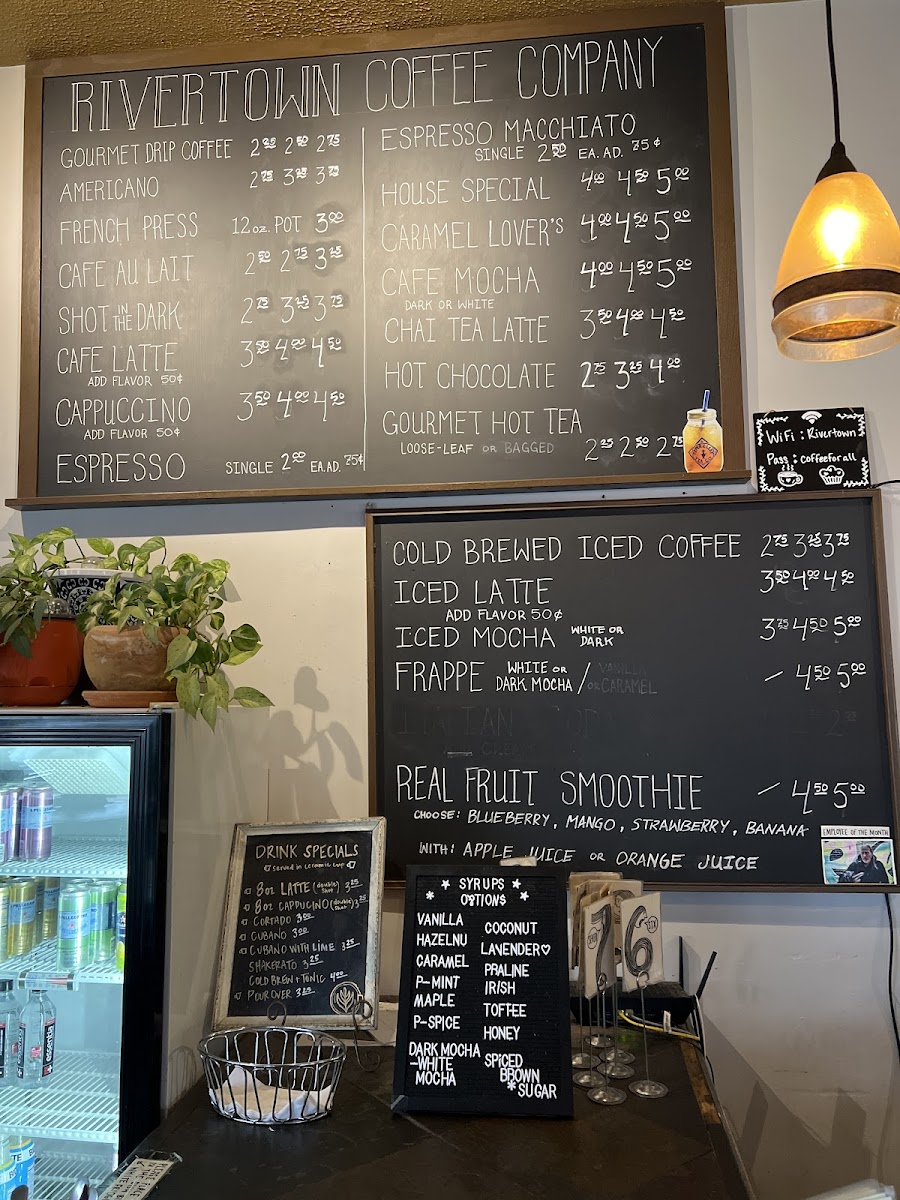 RIVERTOWN COFFEE COMPANY
GOURMET DRIP COFFEE 2.50 2.75
AMERICANO 2.75 3.25 3.75
FRENCH PRESS 12 oz. POT 3.00
CAFE AU LAIT 2.50 2.75 3.25
SHOT IN THE DARK 2.75 3.25 3.75
CAFE LATTE 3.50 4.00 4.50
ADD FLAVOR 50¢
CAPPUCCINO 3.50 4.00 4.50
ADD FLAVOR 50¢
ESPRESSO SINGLE 2.00 EA. AD. 75¢
ESPRESSO MACCHIATO
SINGLE 2.50 EA. AD. 75¢
HOUSE SPECIAL 4.00 4.50 5.00
CARAMEL LOVER'S 4.00 4.50 5.00
CAFE MOCHA 4.00 4.50 5.00
DARK OR WHITE
CHAI TEA LATTE 3.50 4.00 4.50
HOT CHOCOLATE 2.75 3.25 4.00
GOURMET HOT TEA
LOOSE-LEAF OR BAGGED 2.25 2.50 2.75
WiFi : Rivertown
Pass : coffeeforall
COLD BREWED ICED COFFEE 2.75 3.25 3.75
ICED LATTE 3.50 4.00 4.50
ADD FLAVOR 50¢
ICED MOCHA WHITE OR DARK 3.75 4.50 5.00
FRAPPE WHITE OR DARK MOCHA / VANILLA OR CARAMEL — 4.50 5.00
REAL FRUIT SMOOTHIE — 4.50 5.00
CHOOSE: BLUEBERRY, MANGO, STRAWBERRY, BANANA
WITH: APPLE JUICE OR ORANGE JUICE
EMPLOYEE OF THE MONTH
DRINK SPECIALS
served in ceramic cup
8oz LATTE (double shot) 3.25
8oz CAPPUCCINO (double shot) 3.25
CORTADO 3.00
CUBANO 3.00
CUBANO WITH LIME 3.25
SHAKERATO 3.25
COLD BREW + TONIC 4.00
POUR OVER 3.25
SYRUPS
OPTIONS
VANILLA
HAZELNU
CARAMEL
P-MINT
MAPLE
P-SPICE
DARK MOCHA
-WHITE
MOCHA
COCONUT
LAVENDER♡
PRALINE
IRISH
TOFFEE
HONEY
SPICED
BROWN
*SUGAR
26
essentia